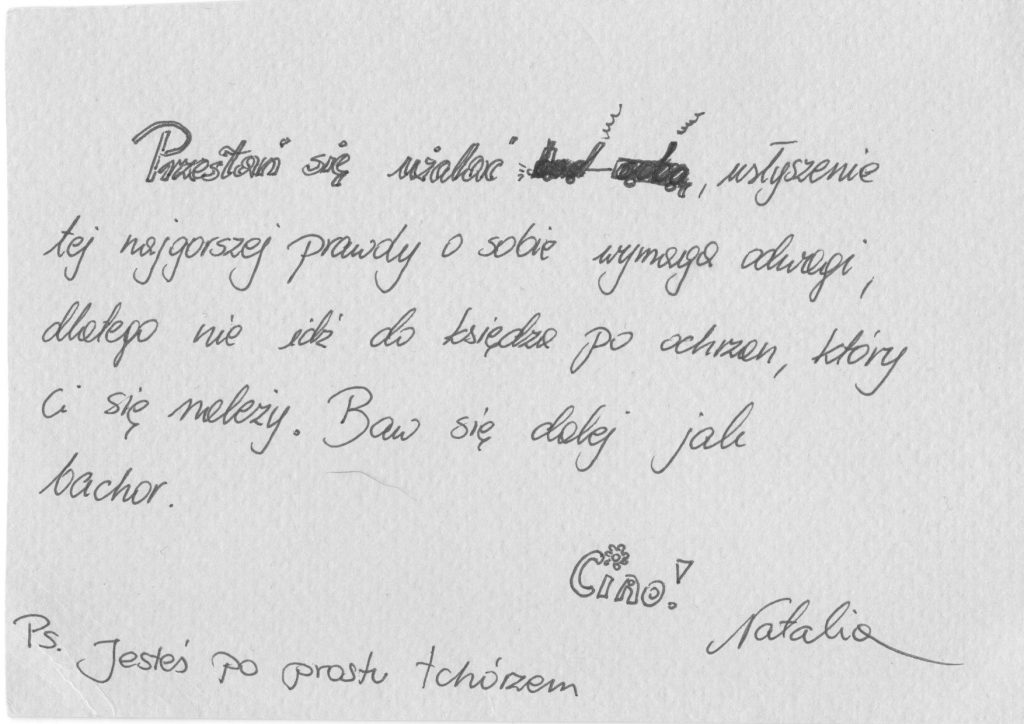 Przestań się użalać nad sobą, usłyszenie
tej najgorszej prawdy o sobie wymaga odwagi,
dlatego nie idź do księdza po ochrzan, który
ci się należy. Baw się dalej jak
bachor.
Ciao!
Natalia
Ps. Jesteś po prostu tchórzem